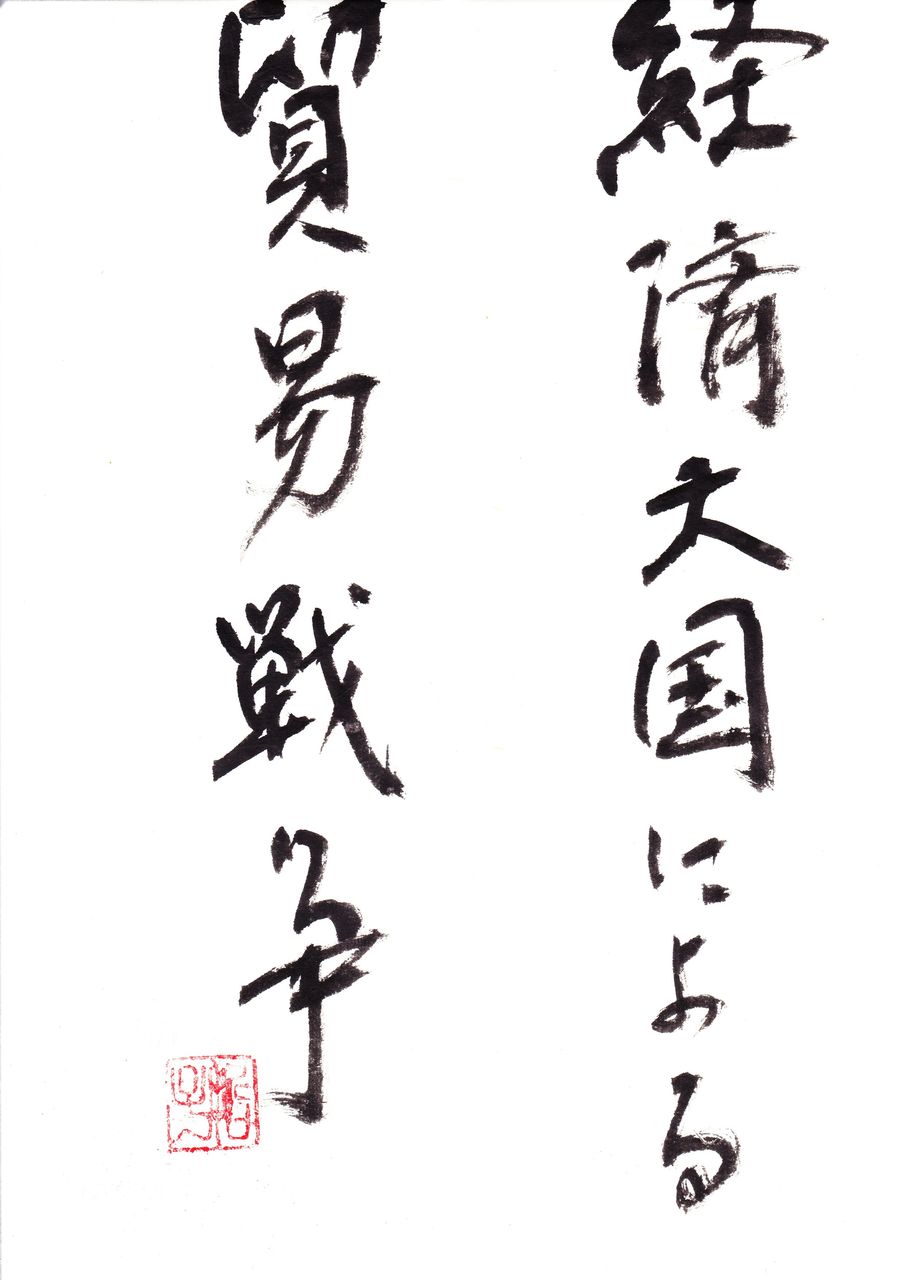 経済大国による
貿易戦争